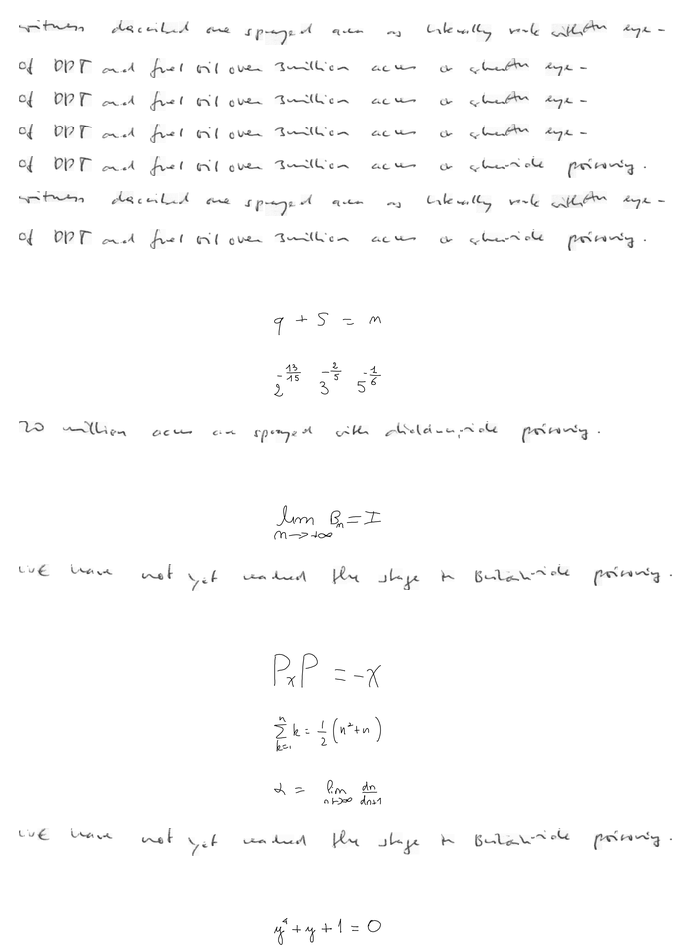 witness described are sprayed area as literally with An eye-
of DDT and fuel oil over 3 million acres a An eye-
of DDT and fuel oil over 3 million acres a An eye-
of DDT and fuel oil over 3 million acres a An eye-
of DDT and fuel oil over 3 million acres a poisoning.
witness described are sprayed area as literally with An eye-
of DDT and fuel oil over 3 million acres a poisoning.
q + 5 = n
2^{-\frac{13}{15}} 3^{-\frac{2}{5}} 5^{-\frac{1}{6}}
20 million acres are sprayed with poisoning.
\lim_{n \to +\infty} B_n = I
we have not yet reached the stage in poisoning.
P_x P = -x
\sum_{k=1}^{n} k = \frac{1}{2}(n^2+n)
\alpha = \lim_{n \to \infty} \frac{d_n}{d_{n+1}}
we have not yet reached the stage in poisoning.
y^4 + y + 1 = 0